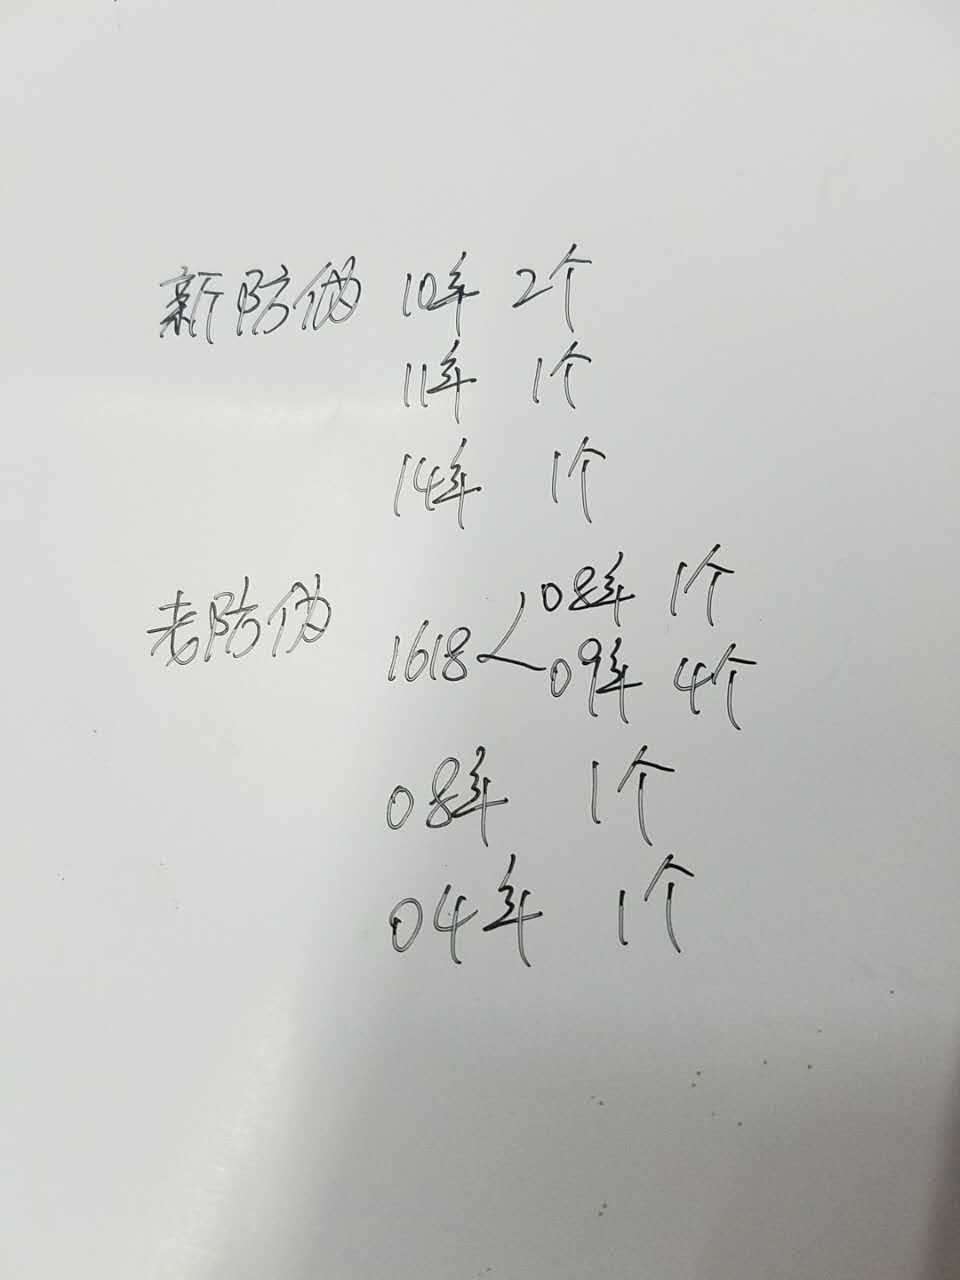 新防伪 10年 2个
11年 1个
14年 1个
老防伪 1618 08年 1个
09年 4个
08年 1个
04年 1个